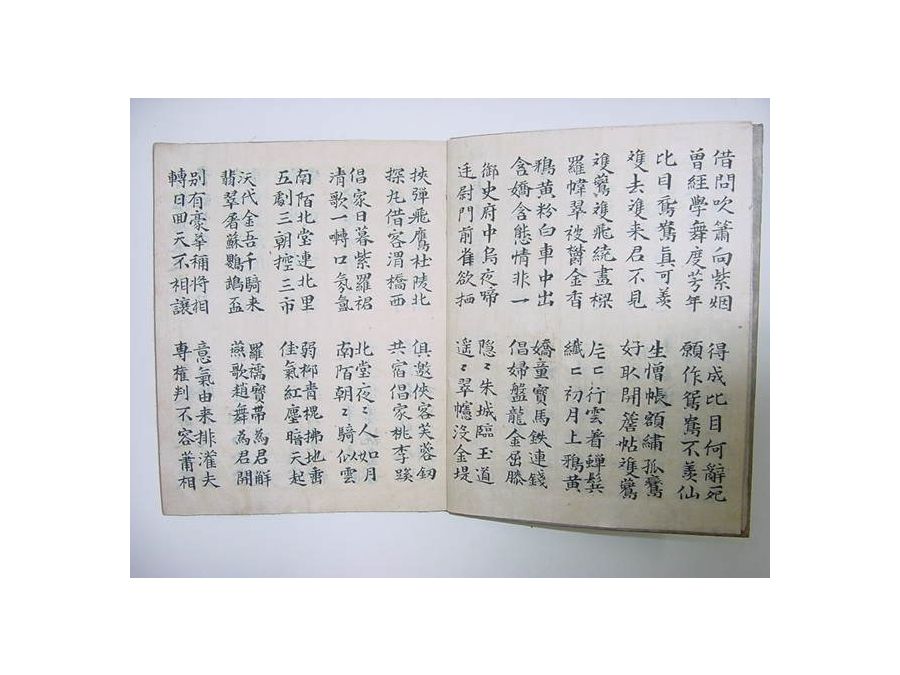 借問吹簫向紫烟
曾經學舞度芳年
得成比目何辭死
願作鴛鴦不羨仙
比目鴛鴦真可羨
雙去雙来君不見
生憎帳額繡孤鸞
好取開簷帖雙鷰
雙鷰雙飛繞畫樑
羅幃翠被鬱金香
片〻行雲着蟬鬢
纖〻初月上鵶黄
鵶黄粉白車中出
含嬌含態情非一
嬌童寶馬鉄連錢
倡婦盤龍金屈膝
御史府中烏夜啼
廷尉門前雀欲栖
隐〻朱城臨玉道
遥〻翠幰沒金堤
挾彈飛鷹杜陵北
探丸借客渭橋西
俱邀俠客芙蓉劒
共宿倡家桃李蹊
倡家日暮紫羅裙
清歌一囀口氛氳
北堂夜〻人如月
南陌朝〻騎似雲
南陌北堂連北里
五劇三朝控三市
弱柳青槐拂地垂
佳氣紅塵暗天起
漢代金吾千騎来
翡翠屠蘇鸚鵡盃
羅襦寶帶為君解
燕歌趙舞為君開
別有豪華稱將相
轉日回天不相讓
意氣由来排灌夫
專權判不容蕭相